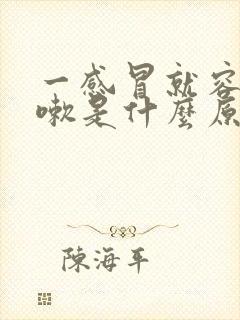 一感冒就容
嗽是什麼原
陳海平